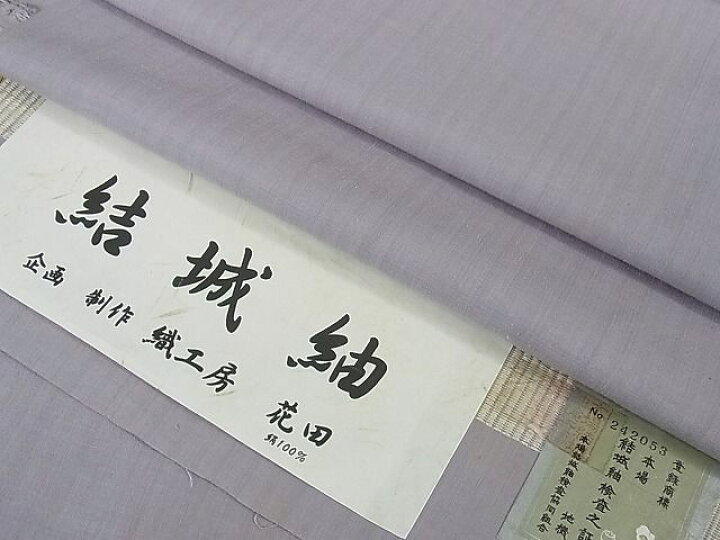 結城紬
企画 制作 織工房 花田
絹100%
No 242053
登録商標
本場
結城紬検査之証
地機
本場結城紬検査協同組合